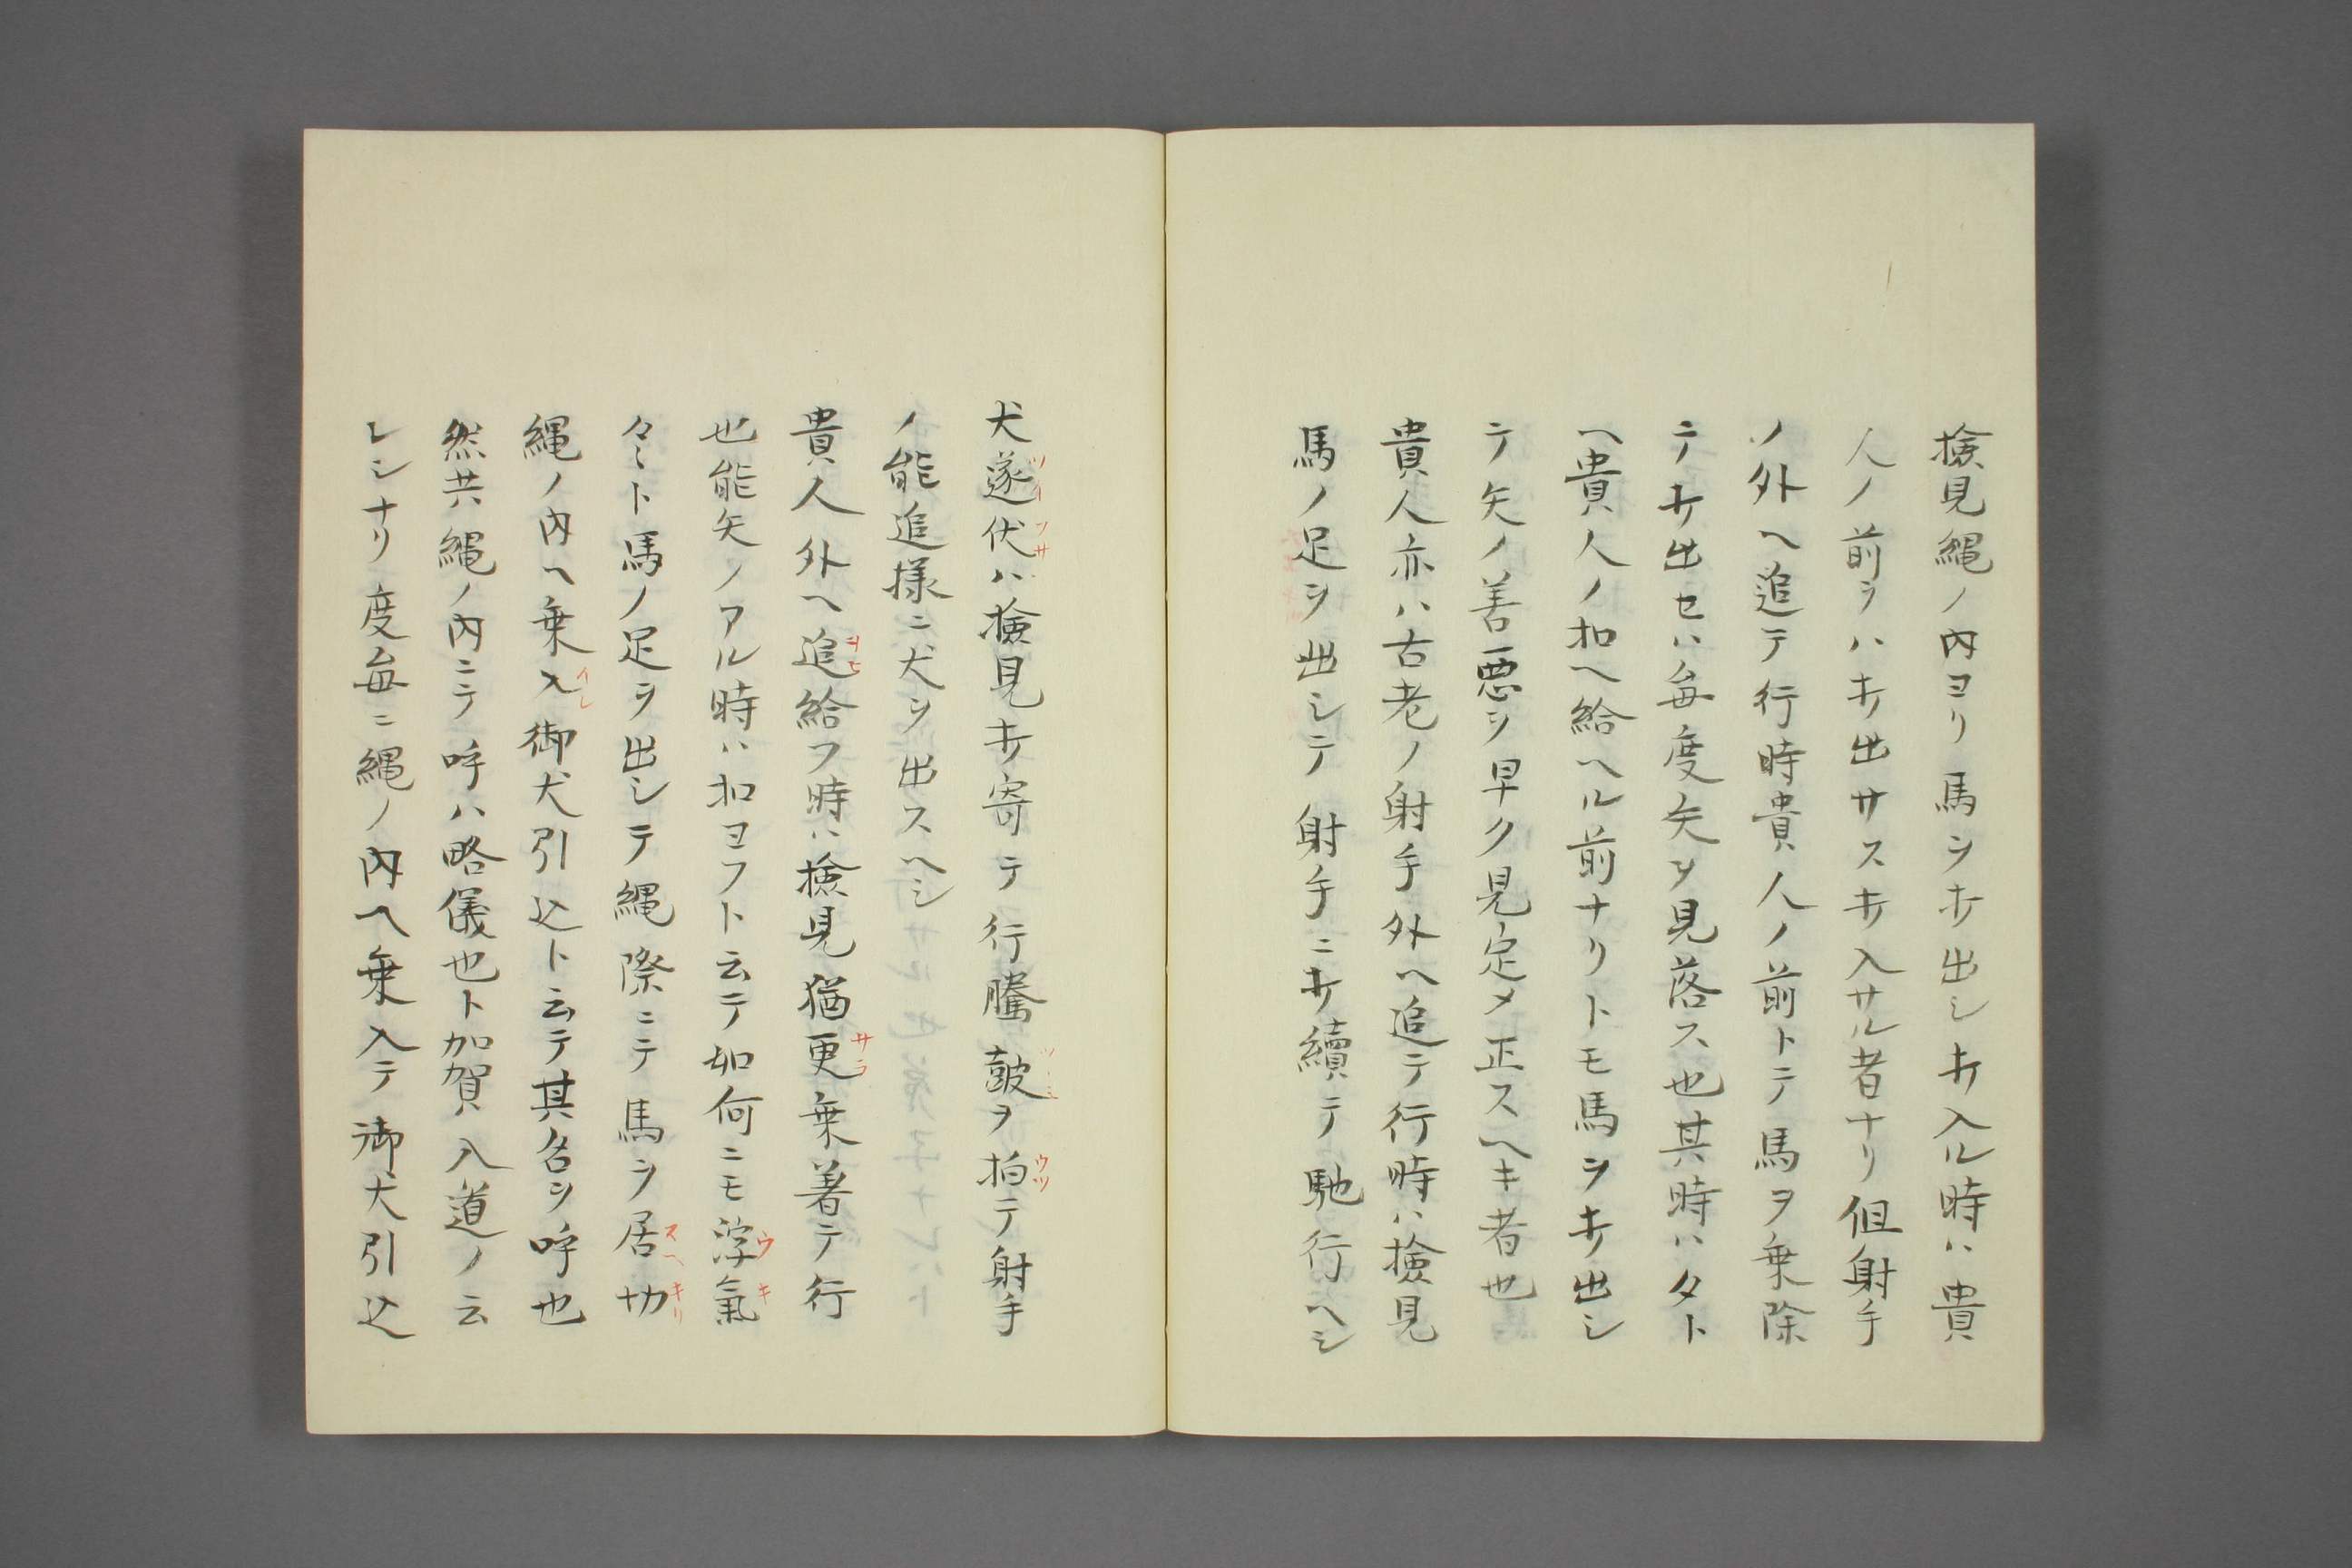 検見縄ノ内ヨリ馬ヲ扣出シ扣入ル時ハ貴
人ノ前ヲハ扣出サス扣入サル者ナリ但射手
ノ外ヘ追テ行時貴人ノ前トテ馬ヲ乗除
テ扣出セハ毎度矢ヲ見落ス也其時ハタト
ヘ貴人ノ扣ヘ給ヘル前ナリトモ馬ヲ扣出シ
テ矢ノ善悪ヲ早ク見定メ正スヘキ者也
貴人亦ハ古老ノ射手外ヘ追テ行時ハ検見
馬ノ足ヲ出シテ射手ニ扣續テ馳行ヘシ
犬遂伏ハ検見扣寄テ行騰皷ヲ拍テ射手
ノ能追様ニ犬ヲ出スヘシ
貴人外ヘ追給フ時ハ検見猶更乗著テ行
也能矢ノアル時ハ扣ヨフト云テ如何ニモ浮氣
々ゝト馬ノ足ヲ出シテ縄際ニテ馬ヲ居切
縄ノ内ヘ乗入御犬引込ト云テ其名ヲ呼也
然共縄ノ内ニテ呼ハ略儀也ト加賀入道ノ云
レシナリ度毎ニ縄ノ内ヘ乗入テ御犬引込